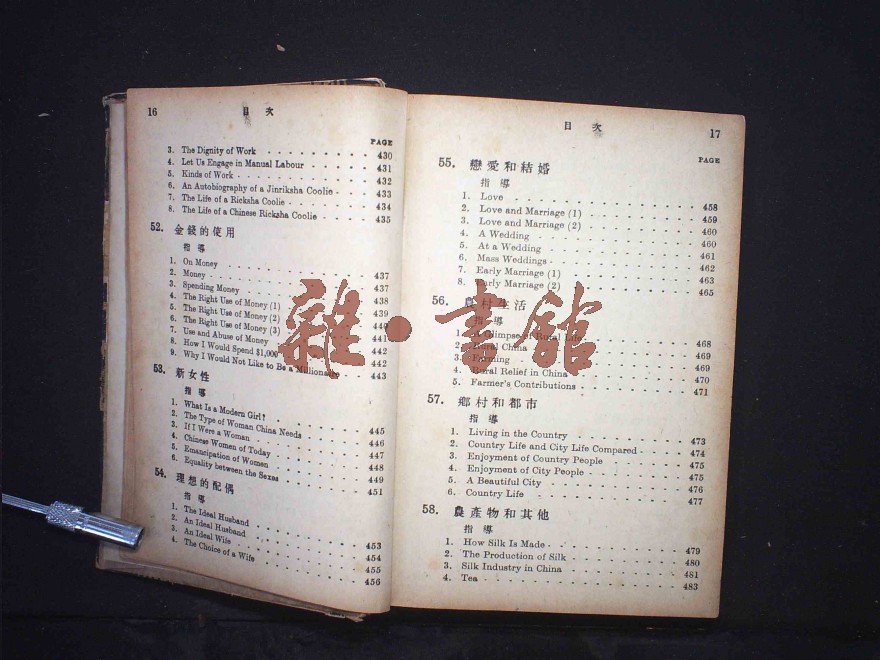 16 目次
PAGE
3. The Dignity of Work 430
4. Let Us Engage in Manual Labour 431
5. Kinds of Work 432
6. An Autobiography of a Jinriksha Coolie 433
7. The Life of a Ricksha Coolie 434
8. The Life of a Chinese Ricksha Coolie 435
52. 金錢的使用
指導
1. On Money 437
2. Money 437
3. Spending Money 438
4. The Right Use of Money (1) 439
5. The Right Use of Money (2) 440
6. The Right Use of Money (3) 441
7. Use and Abuse of Money 442
8. How I Would Spend $1,000 442
9. Why I Would Not Like to Be a Millionaire 443
53. 新女性
指導
1. What Is a Modern Girl? 445
2. The Type of Woman China Needs 446
3. If I Were a Woman 447
4. Chinese Women of Today 448
5. Emancipation of Women 449
6. Equality between the Sexes 451
54. 理想的配偶
指導
1. The Ideal Husband 453
2. An Ideal Husband 454
3. An Ideal Wife 455
4. The Choice of a Wife 456
目次 17
PAGE
55. 戀愛和結婚
指導
1. Love 458
2. Love and Marriage (1) 459
3. Love and Marriage (2) 460
4. A Wedding 460
5. At a Wedding 461
6. Mass Weddings 462
7. Early Marriage (1) 463
8. Early Marriage (2) 465
56. 農村生活
指導
1. A Glimpse of Rural Life 468
2. Rural China 469
3. Farming 469
4. Rural Relief in China 470
5. Farmer's Contributions 471
57. 鄉村和都市
指導
1. Living in the Country 473
2. Country Life and City Life Compared 474
3. Enjoyment of Country People 475
4. Enjoyment of City People 475
5. A Beautiful City 476
6. Country Life 477
58. 農產物和其他
指導
1. How Silk Is Made 479
2. The Production of Silk 480
3. Silk Industry in China 481
4. Tea 483
雜·書館